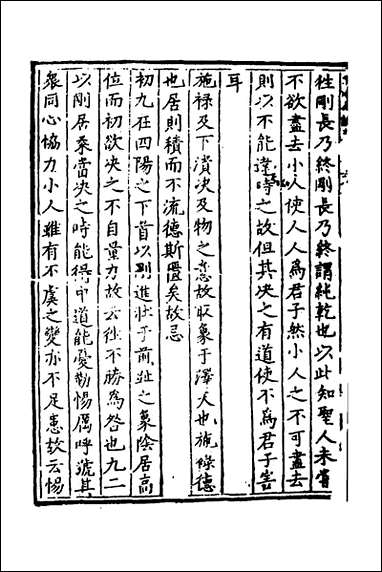 往剛長乃終剛長乃終謂純乾也以此知聖人未嘗
不欲盡去小人使人人為君子然小人之不可盡去
則以不能違時之故但其決之有道使不為君子害
耳
施祿及下潰決及物之意故取象于澤天也施祿德
也居則積而不流德斯匱矣故忌
初九在四陽之下首以剛進壯于前趾之象陰居高
位而初欲決之不自量力故云往不勝為咎也九二
以剛居柔當決之時能得中道能憂勤惕厲呼號其
眾同心協力小人雖有不虞之變亦不足患故云惕